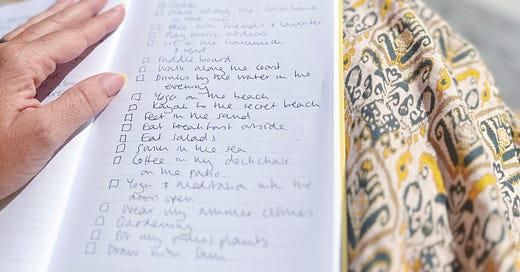 along the
in the
with friends & laughter
Play more outdoors
in the hammock
& read
Paddle board
Walk along the coast
Drinks by the water in the
evening
Yoga on the beach
Kayak to the secret beach
Feet in the sand
Eat breakfast outside
Eat salads
Swim in the sea
Coffee in my deckchair
on the patio.
Yoga & meditation with the
doors open
Wear my summer clothes
Gardening
Pot my patios plants
Draw with Sam